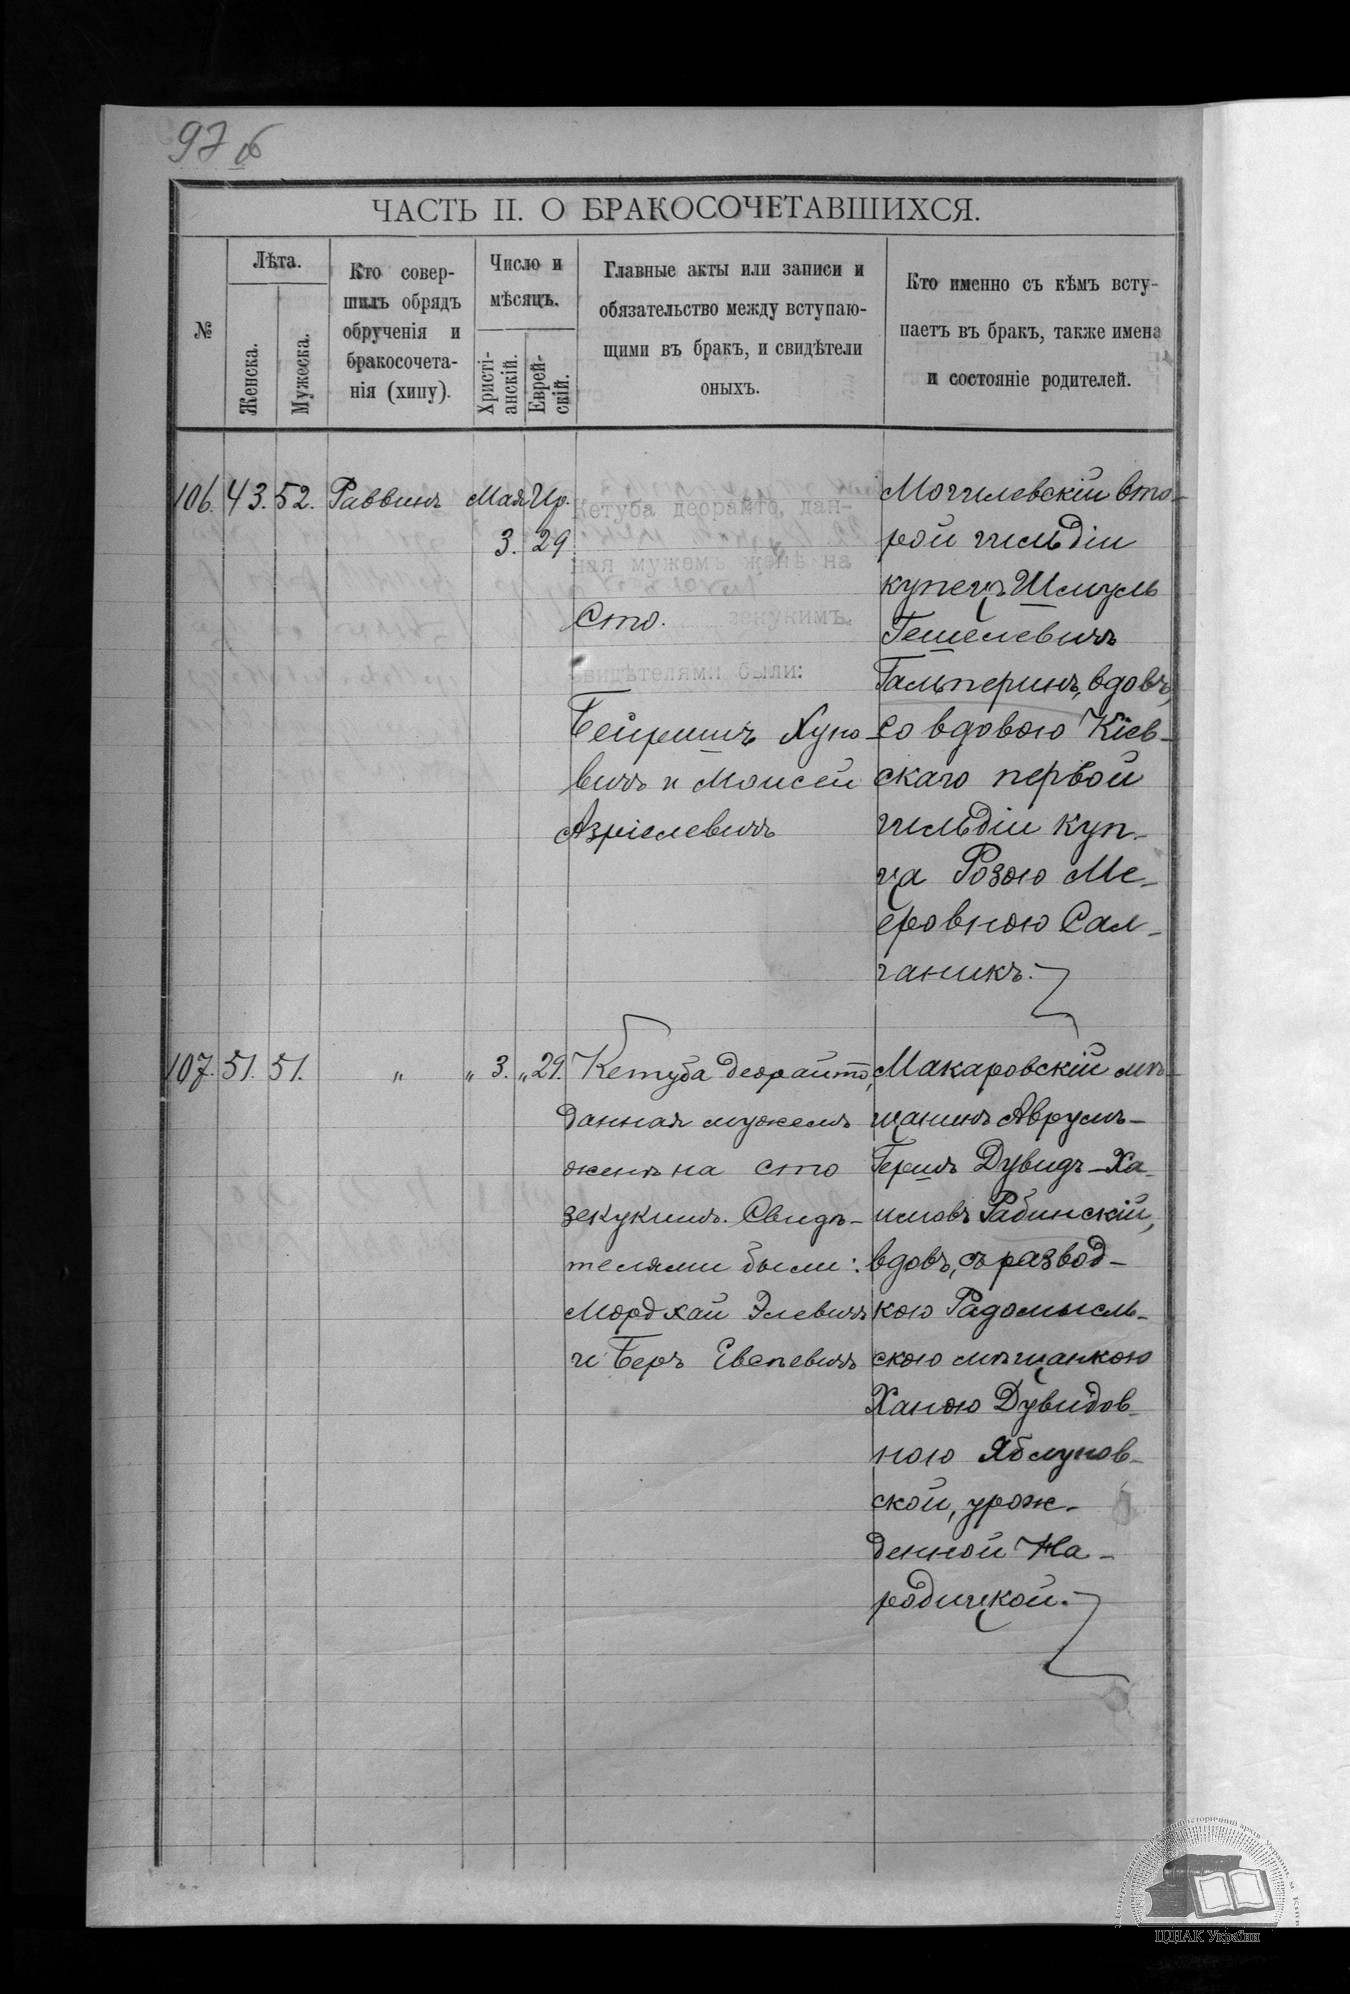 97 б
ЧАСТЬ II. О БРАКОСОЧЕТАВШИХСЯ.
№
Лѣта.
Женска.
Мужеска.
Кто совер-
шилъ обрядъ
обрученія и
бракосочета-
нія (хипу).
Число и
мѣсяцъ.
Христі-
анскій.
Еврей-
скій.
Главные акты или записи и
обязательство между вступаю-
щими въ бракъ, и свидѣтели
оныхъ.
Кто именно съ кѣмъ всту-
паетъ въ бракъ, также имена
и состояніе родителей.
106. 43. 52. Раввинъ Мая Ир.
3. 29
Кетуба деорайто, дан-
ная мужемъ женѣ на
Сто. зекукимъ.
Свидѣтелями были:
Бейришъ Хуно-
вичъ и Моисей
Азріелевичъ
Могилевскій вто-
рой гильдіи
купецъ Шмуль
Гешелевичъ
Гальперинъ, вдовъ,
со вдовою Кіев-
скаго первой
гильдіи куп-
ца Розою Ме-
еровною Сал-
ганикъ.
107. 51. 51. „ „ 3. „ 29.
Кетуба деорайто,
данная мужемъ
женѣ на сто
зекукимъ. Свидѣ-
телями были:
Мордхай Элевичъ
и Беръ Евелевичъ
Макаровскій мѣ-
щанинъ Аврумъ-
Гершъ Дувидъ-Ха-
имовъ Рабинскій,
вдовъ, съ развод-
кою Радомысль-
скою мѣщанкою
Ханою Дувидов-
ною Яблунов-
ской, урож-
денной На-
родицкой.
ЦДІАК України